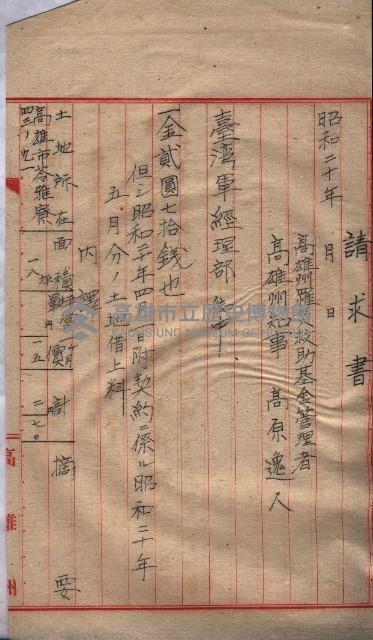 請求書
昭和二十年 月 日
高雄州罹災救助基金管理者
高雄州知事 高原逸人
臺灣軍經理部 御中
一金貳圓七拾錢也
但シ昭和二十年四月 日附契約ニ係ル昭和二十年
五月分ノ土地借上料
內譯
土地所在 面積 單價 計 摘要
高雄市苓雅寮
四三ノ九一 一八坪 一五 二七〇
高雄州
高雄市立歷史博物館